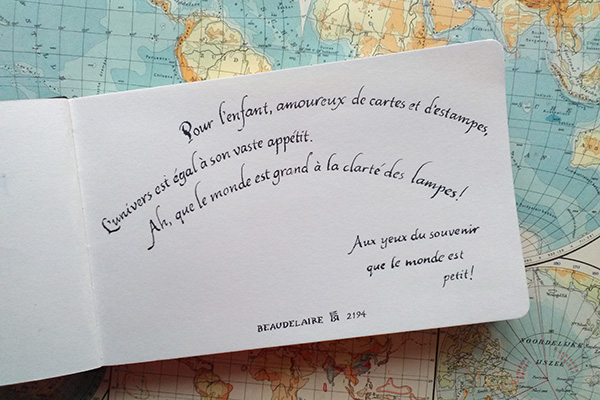 Pour l'enfant, amoureux de cartes et d'estampes,
L'univers est égal à son vaste appétit.
Ah, que le monde est grand à la clarté des lampes!
Aux yeux du souvenir
que le monde est
petit!
BEAUDELAIRE 2194
NOORDELIJKE
IJSZEE